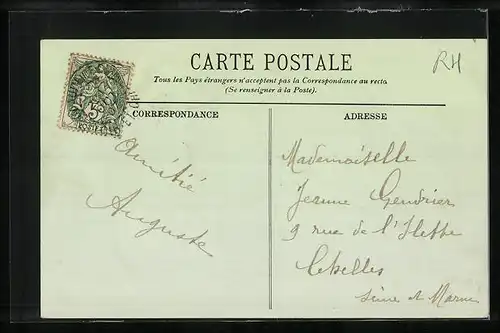 CARTE POSTALE
RH
Tous les Pays étrangers n'acceptent pas la Correspondance au recto
(Se renseigner à la Poste).
CORRESPONDANCE
ADRESSE
Amitié
Auguste
Mademoiselle
Jeanne
9 rue de l'
Chelles
Seine et Marne
5